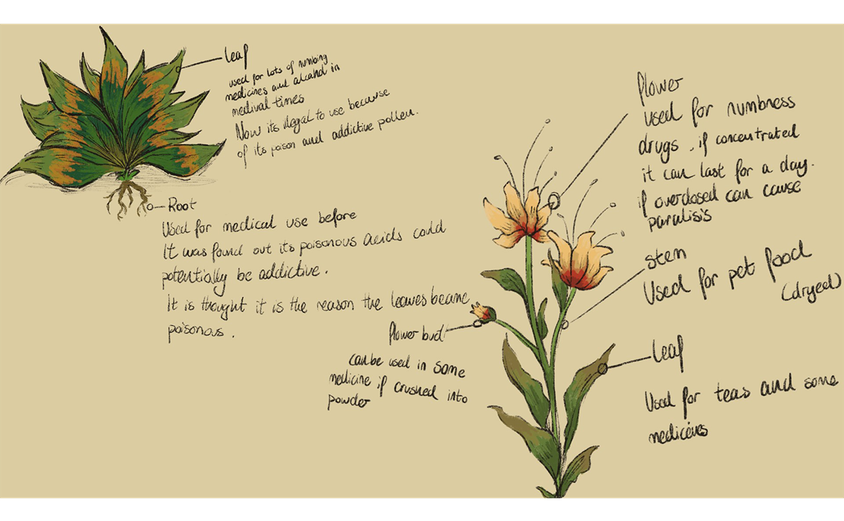 leaf
used for lots of numbing
medicines and alcahol in
medival times
Now its illegal to use because
of its poison and addictive pollen.
Root
Used for medical use before
It was found out its poisonous acids could
potentially be addictive.
It is thought it is the reason the leaves became
poisonous.
flower bud
can be used in some
medicine if crushed into
powder
flower
used for numbness
drugs, if concentrated
it can last for a day.
if overdosed can cause
paralisis
stem
Used for pet food
(dryed)
leaf
Used for teas and some
medicines